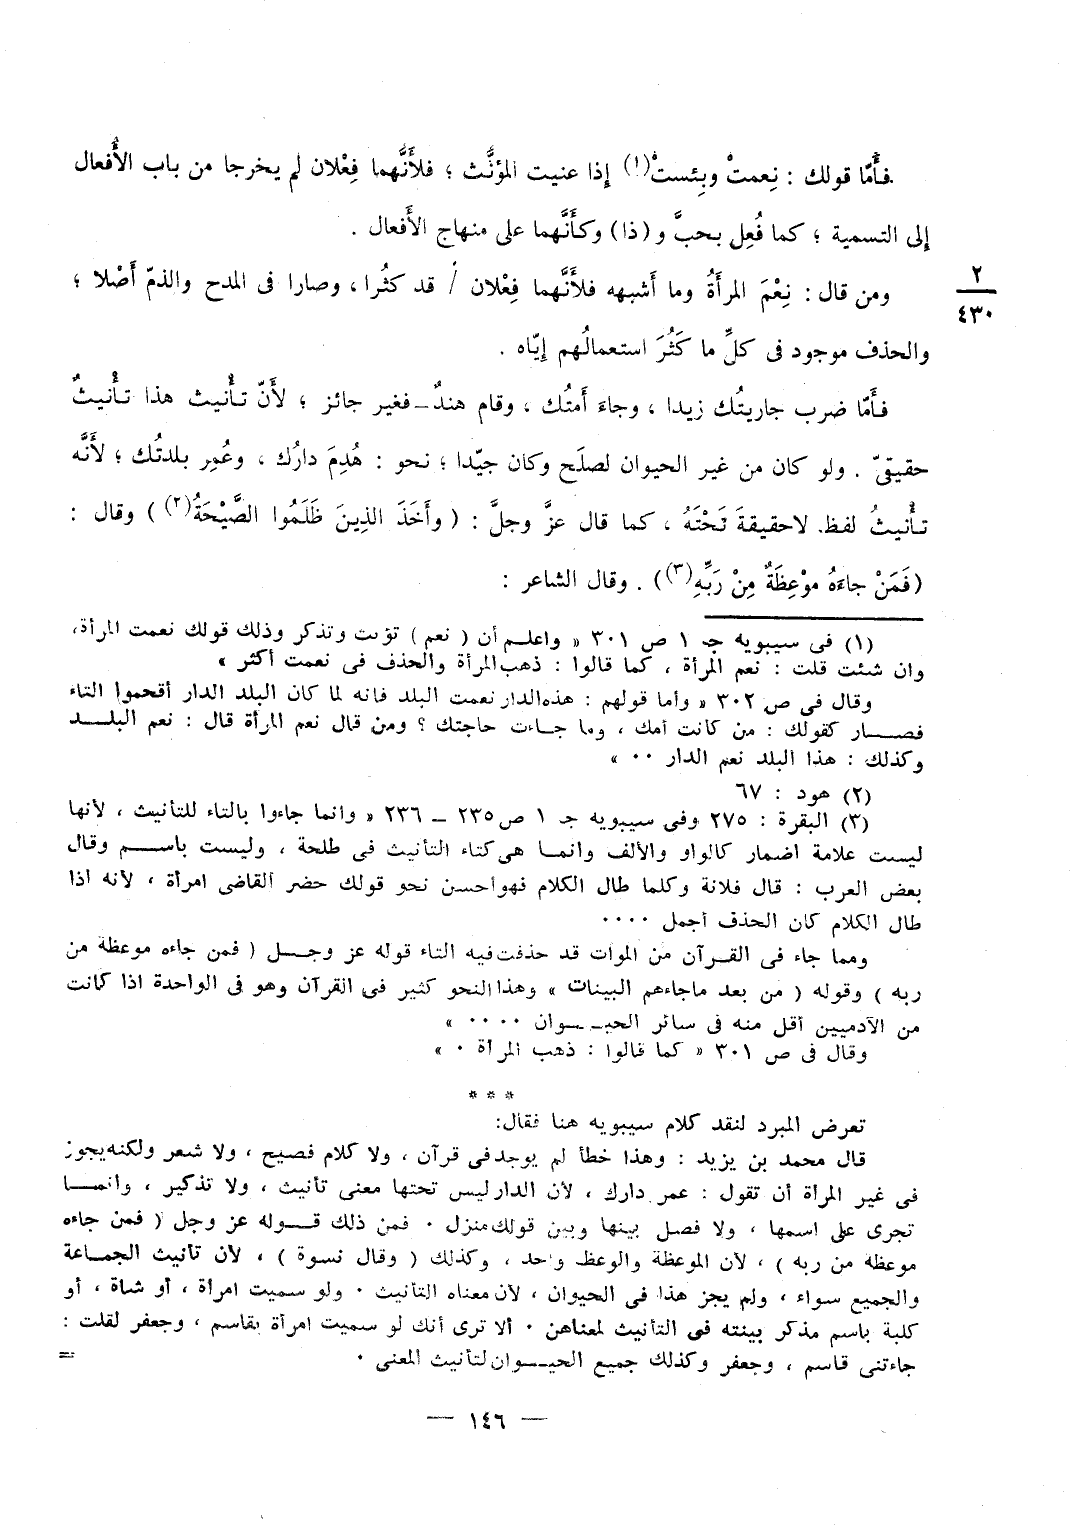 فأَمّا قولك : نِعمتْ وبِئستْ(١) إِذا عنيت المؤنَّث ؛ فلأَنَّهما فِعْلان لم يخرجا من باب الأَفعال
إِلى التسمية ؛ كما فُعِل بحبَّ و (ذا) وكأَنَّهما على منهاج الأَفعال .
ومن قال : نِعْمَ المرأَةُ وما أَشبهه فلأَنَّهما فِعْلان / قد كثُرا ، وصارا فى المدح والذمّ أَصْلا ؛
٢
٤٣٠
والحذف موجود فى كلِّ ما كَثُرَ استعمالُهم إِيّاه .
فأَمّا ضرب جاريتُك زيدا ، وجاءَ أَمتُك ، وقام هندٌ ــ فغير جائز ؛ لأَنّ تأْنيث هذا تأْنيثٌ
حقيقىّ . ولو كان من غير الحيوان لصلَح وكان جيّدا ؛ نحو : هُدِمَ دارُك ، وعُمِر بلدتُك ؛ لأَنَّه
تأْنيثُ لفظ. لاحقيقةَ تَحْتَهُ ، كما قال عزَّ وجلَّ : ( وأَخَذَ الذِينَ ظَلَمُوا الصَّيْحَةُ(٢) ) وقال :
(فَمَنْ جاءَهُ موْعِظَةٌ مِنْ رَبِّهِ(٣)) . وقال الشاعر :
(١) فى سيبويه جـ ١ ص ٣٠١ « واعلـم أن ( نعم ) تؤنث وتذكر وذلك قولك نعمت المرأة،
وان شئت قلت : نعم المرأة ، كما قالوا : ذهب المرأة والحذف فى نعمت أكثر »
وقال فى ص ٣٠٢ « وأما قولهم : هذه الدار نعمت البلد فانه لما كان البلد الدار أقحموا التاء
فصـــار كقولك : من كانت أمك ، وما جـاءت حاجتك ؟ ومن قال نعم المرأة قال : نعم البلــد
وكذلك : هذا البلد نعم الدار ٠٠ »
(٢) هود : ٦٧
(٣) البقرة : ٢٧٥ وفى سيبويه جـ ١ ص ٢٣٥ ــ ٢٣٦ « وانما جاءوا بالتاء للتأنيث ، لأنها
ليست علامة اضمار كالواو والألف وانمـا هى كتاء التأنيث فى طلحة ، وليست باسـم وقال
بعض العرب : قال فلانة وكلما طال الكلام فهو أحسن نحو قولك حضر القاضى امرأة ، لأنه اذا
طال الكلام كان الحذف أجمل ٠٠٠٠
ومما جاء فى القـرآن من الموات قد حذفت فيه التاء قوله عز وجــل ( فمن جاءه موعظة من
ربه ) وقوله ( من بعد ماجاءهم البينات » وهذا النحو كثير فى القرآن وهو فى الواحدة اذا كانت
من الآدميين أقل منه فى سائر الحيــوان ٠٠٠٠ »
وقال فى ص ٣٠١ « كما قالوا : ذهب المرأة ٠ »
* * *
تعرض المبرد لنقد كلام سيبويه هنا فقال:
قال محمد بن يزيد : وهذا خطأ لم يوجد فى قرآن ، ولا كلام فصيح ، ولا شعر ولكنه يجوز
فى غير المرأة أن تقول : عمر دارك ، لأن الدار ليس تحتها معنى تأنيث ، ولا تذكير ، وانمــا
تجرى على اسمها ، ولا فصل بينها وبين قولك منزل ٠ فمن ذلك قـوله عز وجل ( فمن جاءه
موعظة من ربه ) ، لأن الموعظة والوعظ واحد ، وكذلك ( وقال نسوة ) ، لأن تأنيث الجمـاعة
والجميع سواء ، ولم يجز هذا فى الحيوان ، لأن معناه التأنيث ٠ ولو سميت امرأة ، أو شاة ، أو
كلبة باسم مذكر بينته فى التأنيث لمعناهن ٠ ألا ترى أنك لو سميت امرأة بقاسم ، وجعفر لقلت :
جاءتنى قاسم ، وجعفر وكذلك جميع الحيــوان لتأنيث المعنى ٠
=
— ١٤٦ —